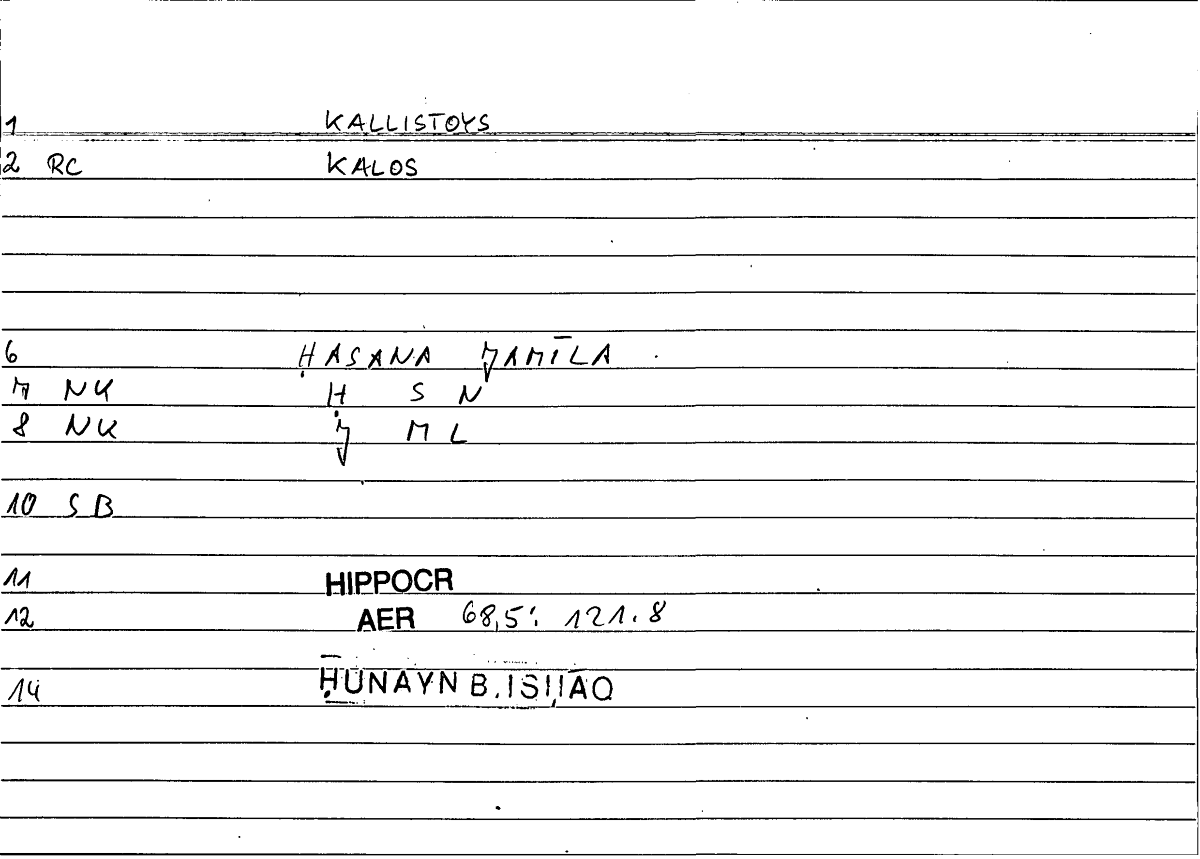 1 KALLISTOYS
2 RC KALOS
6 ḤASANA ǦAMĪLA
7 NK Ḥ S N
8 NK Ǧ M L
10 SB
11 HIPPOCR
12 AER 68,5: 121.8
14 ḤUNAYN B. ISḤĀQ